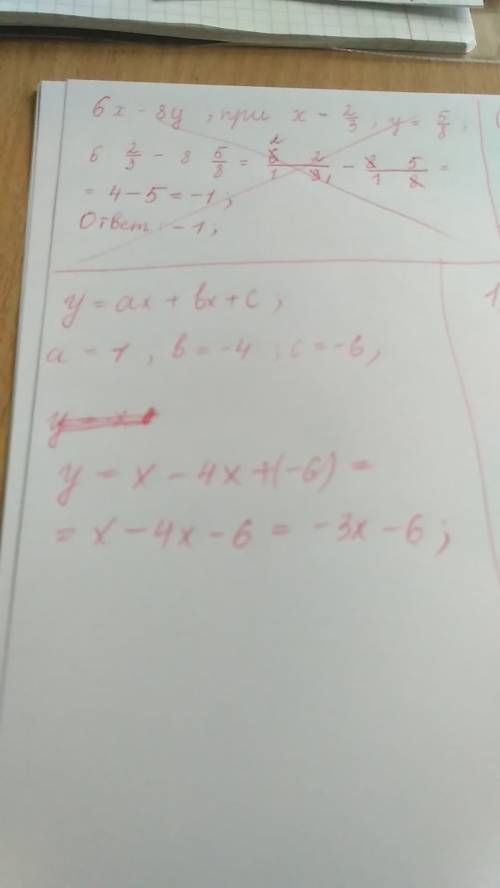 6x - 8y , при x = 2/3 , y = 5/8 ;
6 2/3 - 8 5/8 = 6 2 / 1 3 - 8 5 / 1 8 =
= 4 - 5 = -1 ;
Ответ: -1 ;
y = ax + bx + c ;
a = 1 , b = -4 ; c = -6 ,
y = x
y = x - 4x + (-6) =
= x - 4x - 6 = -3x - 6 ;